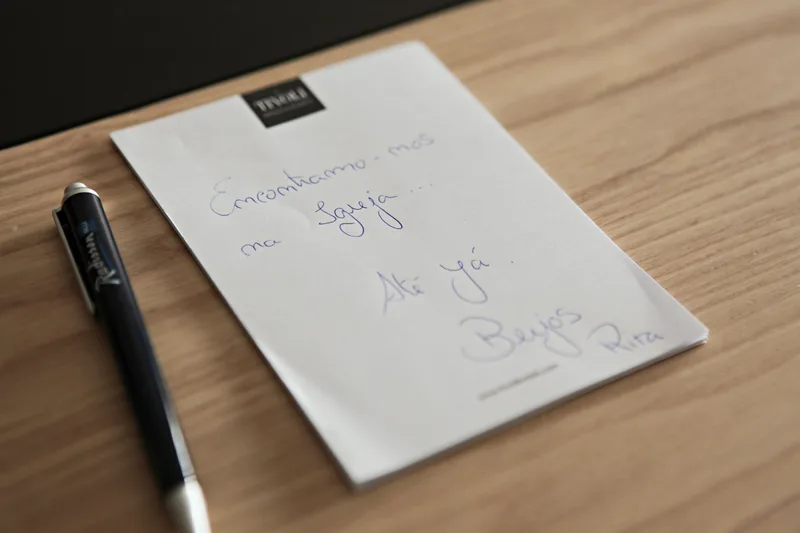 TIVOLI
Encontramo-nos
na Igreja...
Até já.
Beijos
Rita